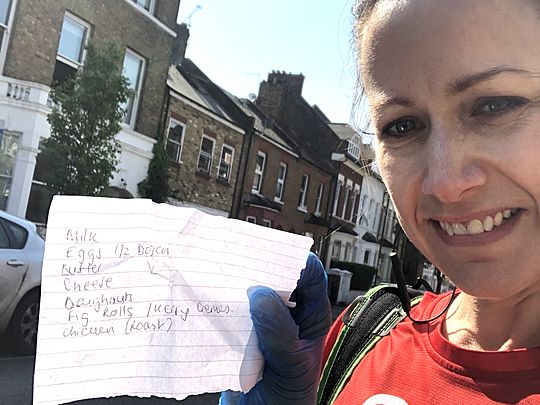 Milk
Eggs 1/2 Dozen
Butter
Cheese
Doughnuts
Fig Rolls / Merry Cremes.
Chicken (Roast)